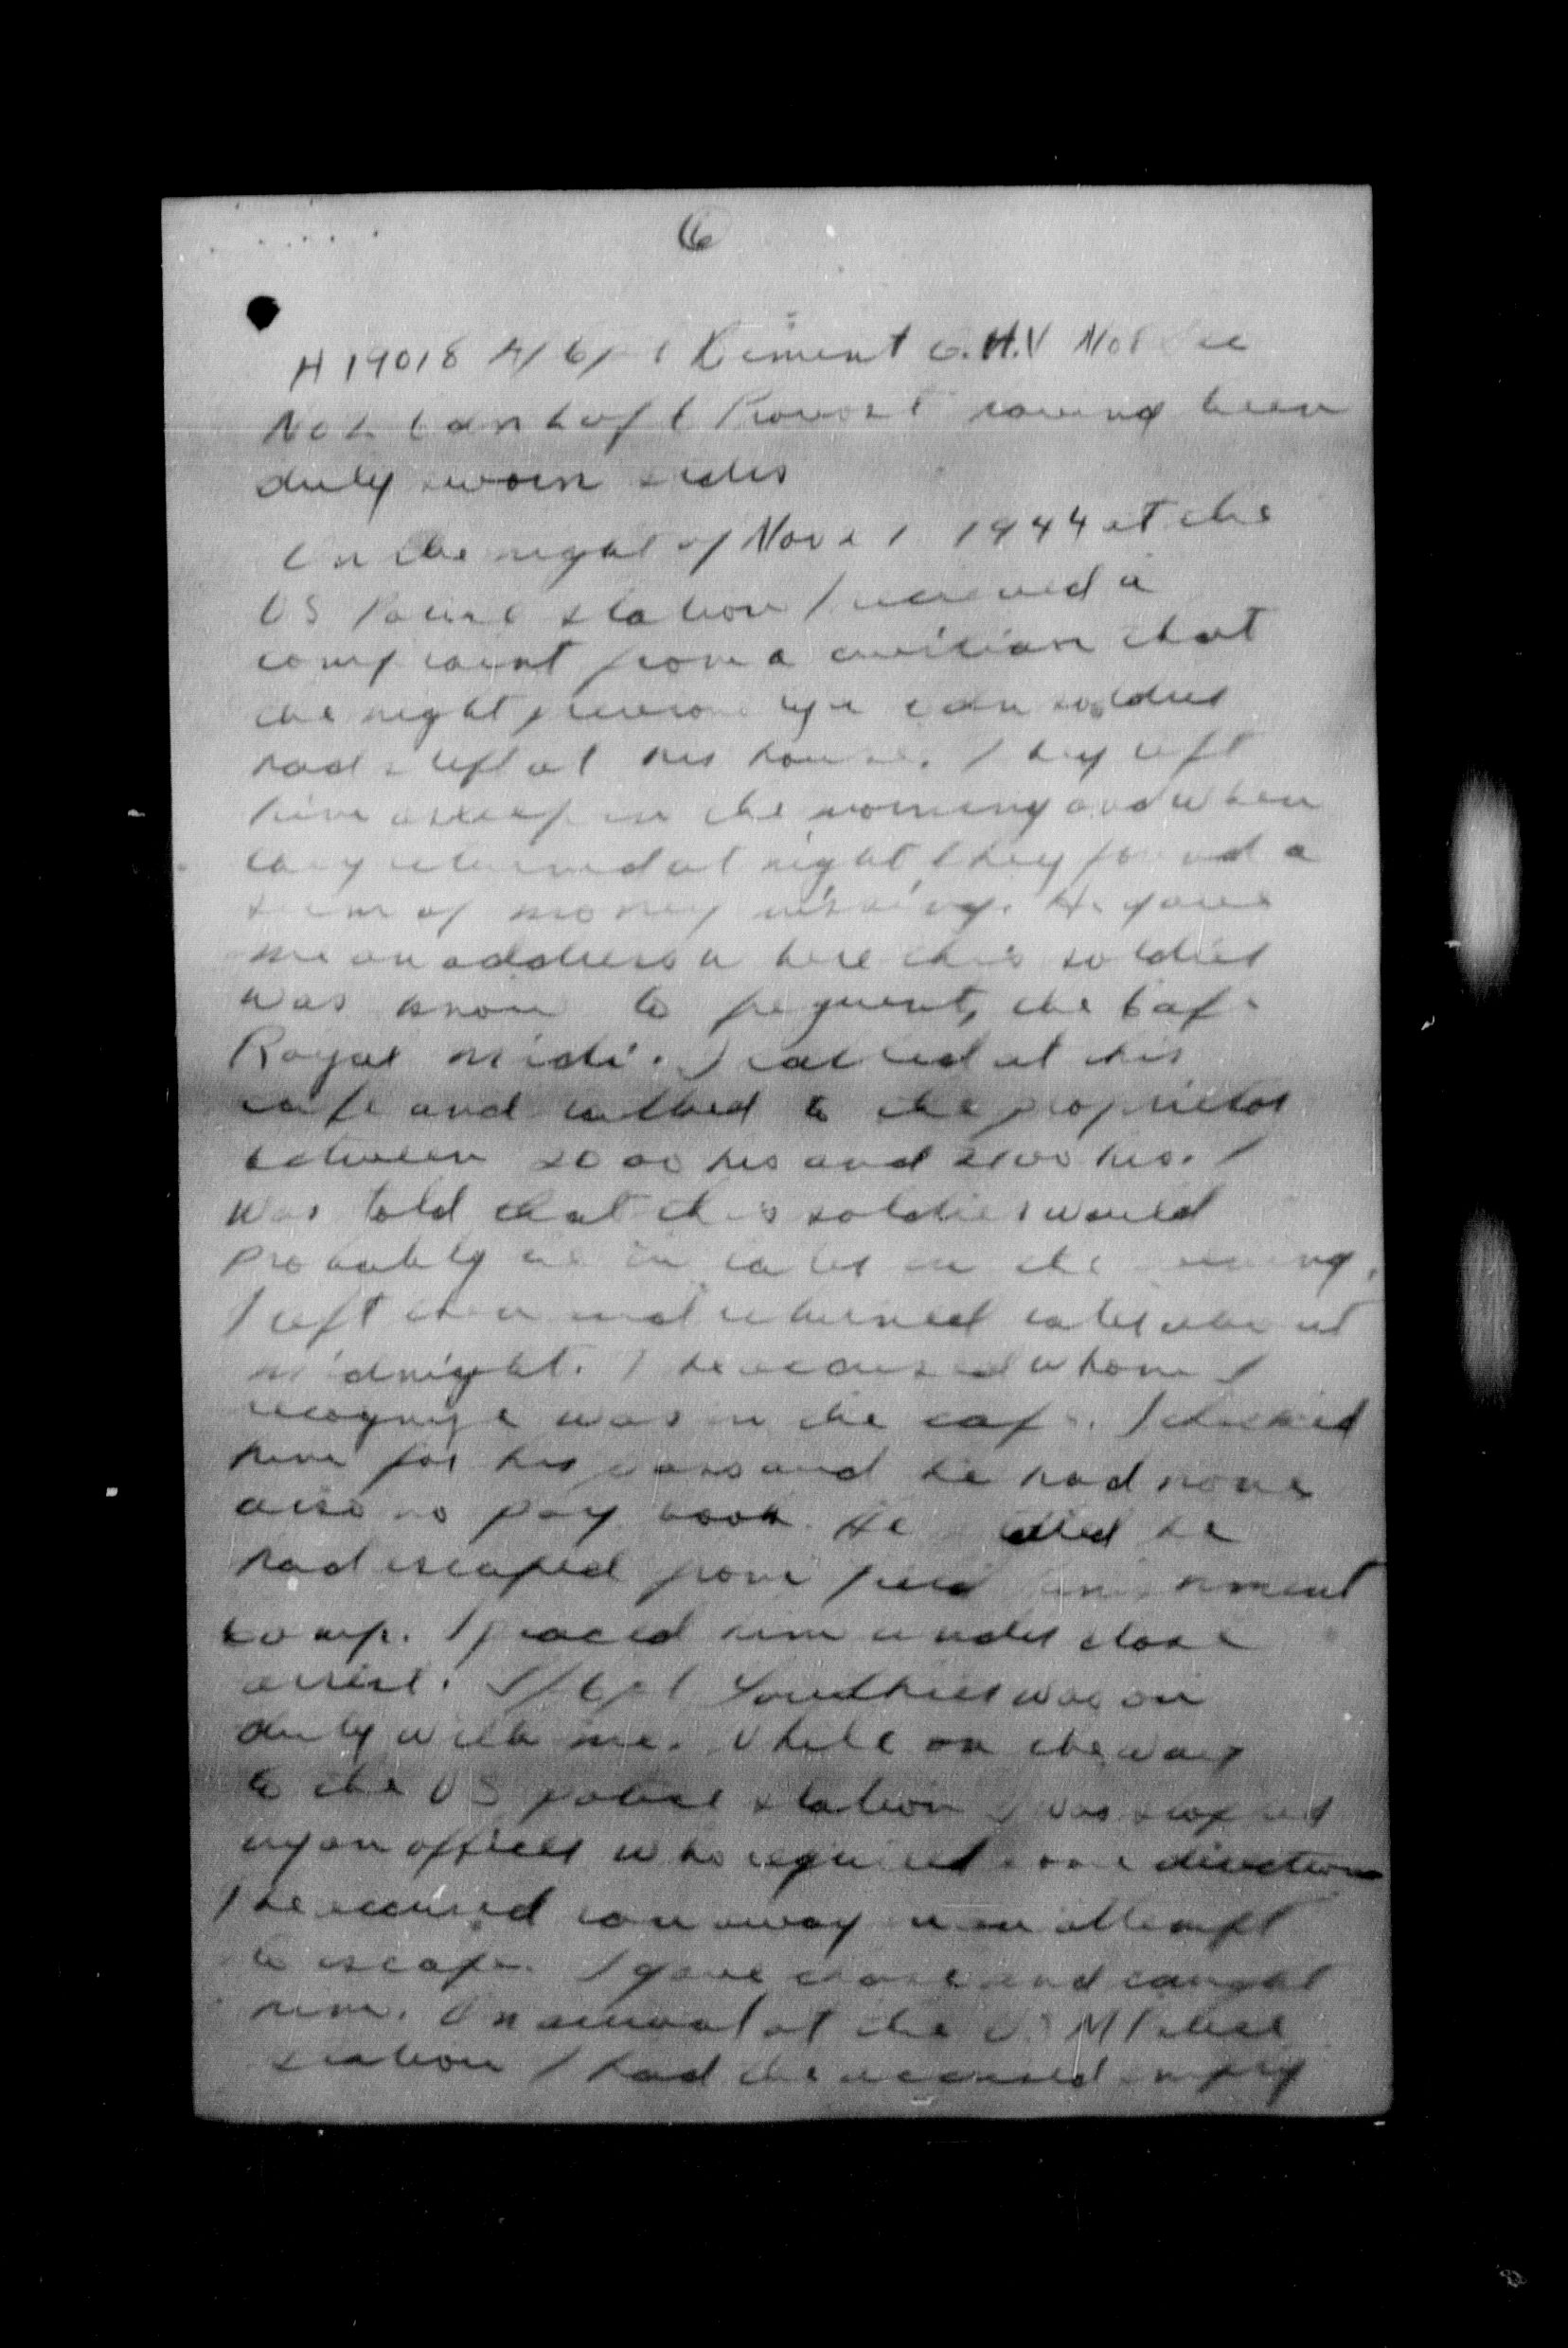 6
H 19018 A/Cpl Diment G.H.V No 1 Sec
No 2 Cdn L of C Provost having been
duly sworn states
On the night of Nov 21 1944 at the
US Police station I received a
complaint from a civilian that
the night previous a Cdn soldier
had slept at his house. They left
him asleep in the morning and when
they returned at night they found a
sum of money missing. He gave
me an address where this soldier
was known to frequent, the Cafe
Royal Midi. I called at this
cafe and talked to the proprietor
between 2000 hrs and 2100 hrs. I
was told that this soldier would
probably be in later in the evening.
I left then and returned later about
midnight. The accused whom I
recognize was in the cafe. I checked
him for his pass and he had none
also no pay book. He stated he
had escaped from field punishment
camp. I placed him under close
arrest. L/Cpl was on
duty with me. While on the way
to the US police station I was stopped
by an officer who required some directions
The accused ran away in an attempt
to escape. I gave chase and caught
him. On arrival at the US M Police
station I had the accused empty